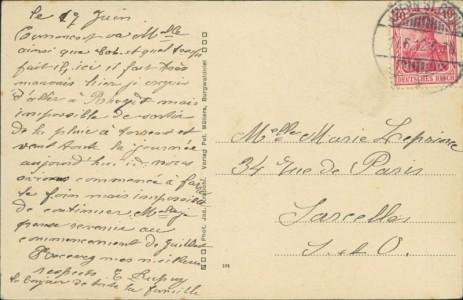 le 17 Juin
Comment va Melle
ainsi que et quel temps
fait il, ici il fait très
mauvais hier je croyais
d'aller à mais
impossible de sortir
de la pluie à torrent et
vent tout la journée
aujourd'hui nous
avions commencé à faire
le foin mais impossible
de continuer Melle je
pense revenir au
commencement de Juillet
Recevez mes meilleurs
respects E. Dupuy
le bonjour de toute la famille
DEUTSCHES REICH
Melle Marie Lepoivre
34 rue de Paris
Sarcelles
S. et O.
Phot. Jos. Verlag Pet. Müllers, Burgwaldniel